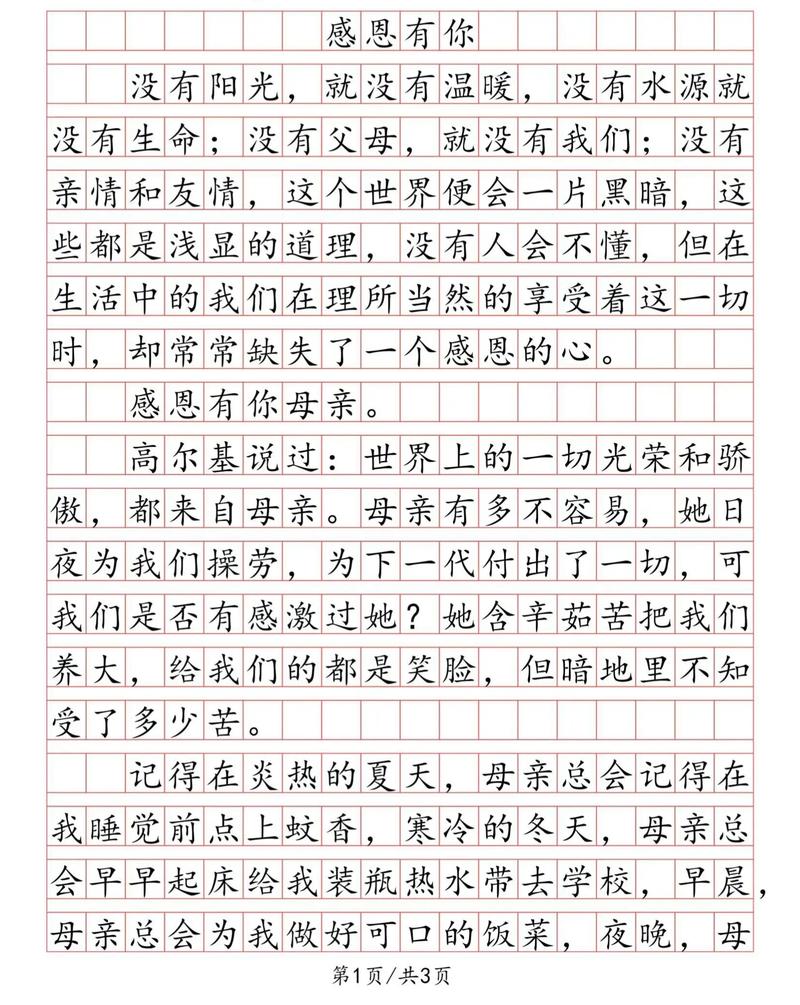 感恩有你
没有阳光，就没有温暖，没有水源就
没有生命；没有父母，就没有我们；没有
亲情和友情，这个世界便会一片黑暗，这
些都是浅显的道理，没有人会不懂，但在
生活中的我们在理所当然的享受着这一切
时，却常常缺失了一个感恩的心。
感恩有你母亲。
高尔基说过：世界上的一切光荣和骄
傲，都来自母亲。母亲有多不容易，她日
夜为我们操劳，为下一代付出了一切，可
我们是否有感激过她？她含辛茹苦把我们
养大，给我们的都是笑脸，但暗地里不知
受了多少苦。
记得在炎热的夏天，母亲总会记得在
我睡觉前点上蚊香，寒冷的冬天，母亲总
会早早起床给我装瓶热水带去学校，早晨，
母亲总会为我做好可口的饭菜，夜晚，母
第1页/共3页